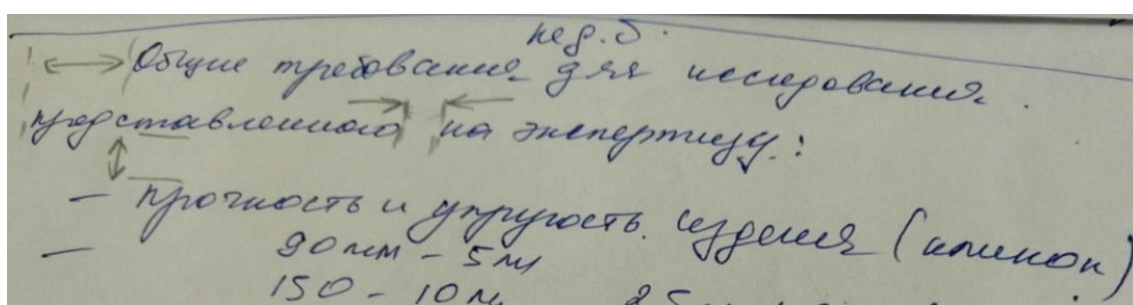 нед. 5.
Общие требования для исследования.
представленного на экспертизу:
— прочность и упругость изделия (клинок)
— 90мм – 5м
150 – 10м